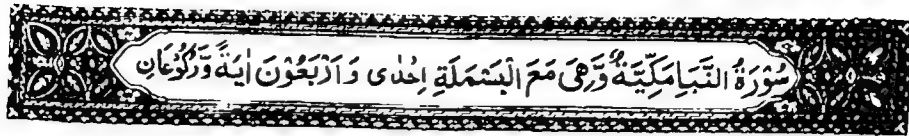 سُوْرَةُ النَّبَاِ مَكِّيَّةٌ وَّهِىَ مَعَ الْبَسْمَلَةِ اِحْدٰى وَ اَرْبَعُوْنَ اٰيَةً وَّرُكُوْعَانِ